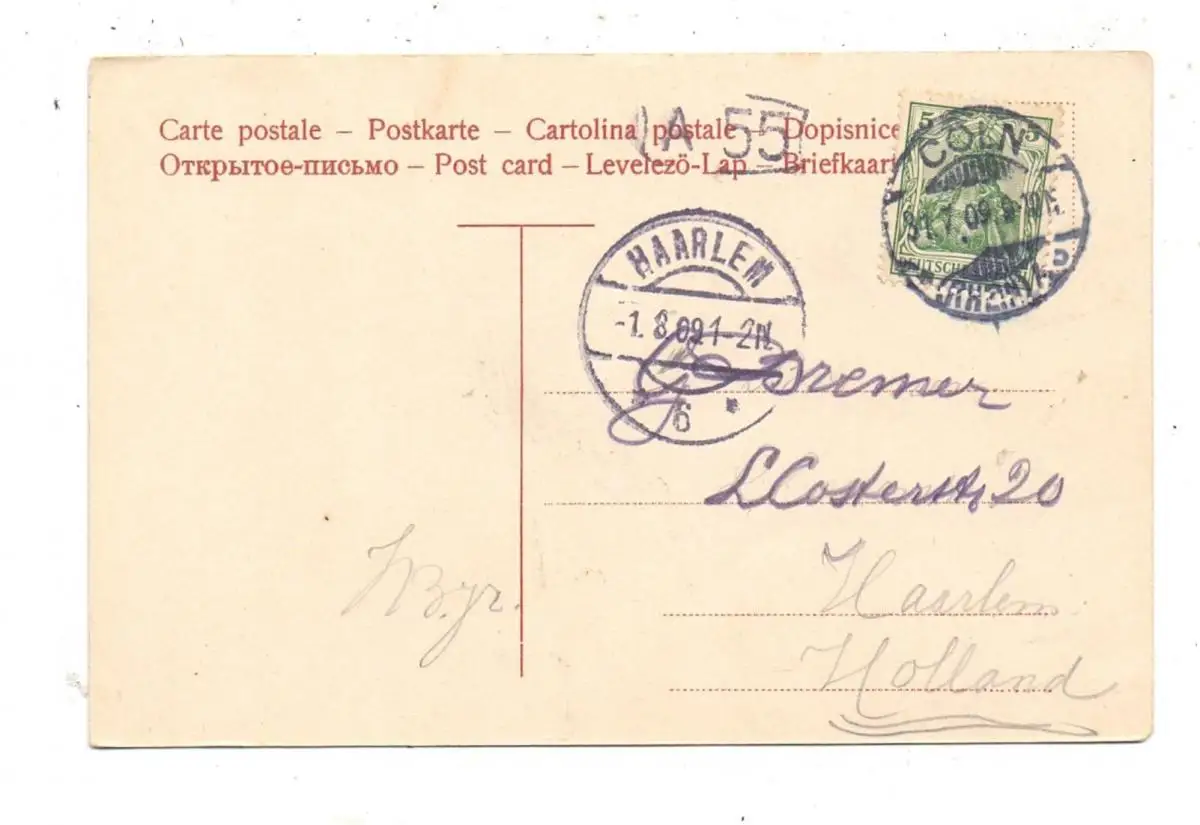 Carte postale – Postkarte – Cartolina postale – Dopisnice
Открытое-письмо – Post card – Levelezö-Lap – Briefkaart
A 55
5 5
DEUTSCHES
CÖLN
31.7.09.9-10
HAARLEM
-1.8.09.1-2N.
6
Bremer
L Costerstr 20
Haarlem
Holland